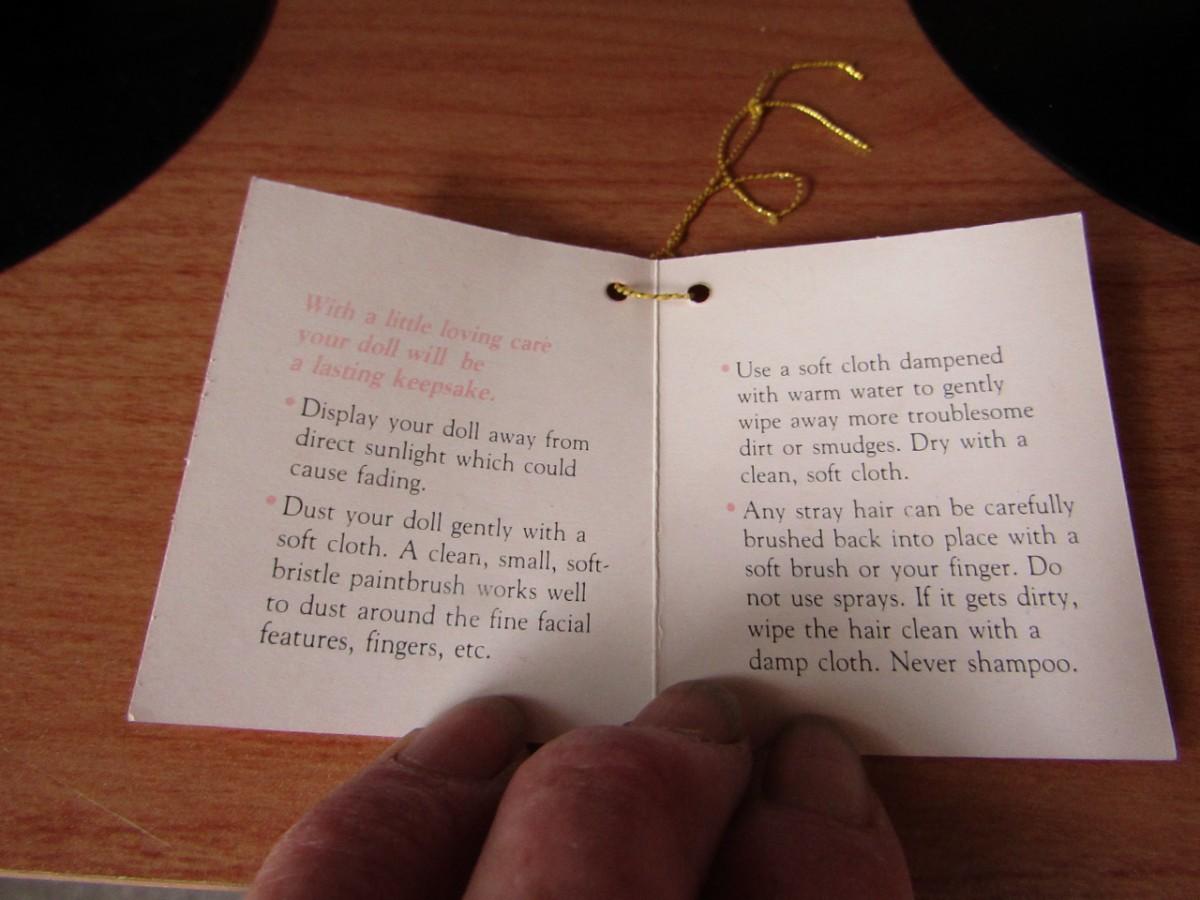 With a little loving care
your doll will be
a lasting keepsake.
• Display your doll away from
direct sunlight which could
cause fading.
• Dust your doll gently with a
soft cloth. A clean, small, soft-
bristle paintbrush works well
to dust around the fine facial
features, fingers, etc.
• Use a soft cloth dampened
with warm water to gently
wipe away more troublesome
dirt or smudges. Dry with a
clean, soft cloth.
• Any stray hair can be carefully
brushed back into place with a
soft brush or your finger. Do
not use sprays. If it gets dirty,
wipe the hair clean with a
damp cloth. Never shampoo.